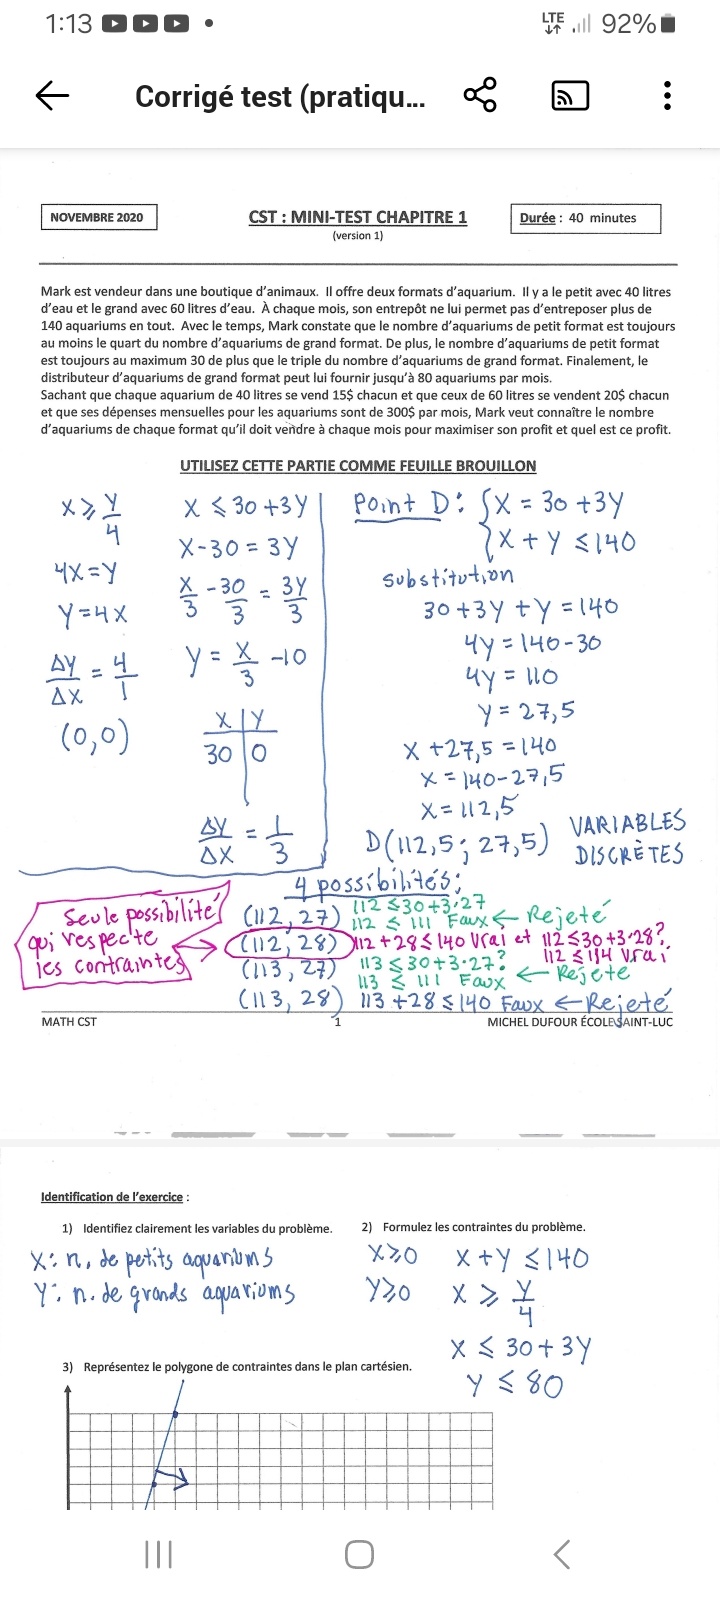 1:13
LTE
92%
Corrigé test (pratiqu...
NOVEMBRE 2020
CST : MINI-TEST CHAPITRE 1
(version 1)
Durée : 40 minutes
Mark est vendeur dans une boutique d'animaux. Il offre deux formats d'aquarium. Il y a le petit avec 40 litres
d'eau et le grand avec 60 litres d'eau. À chaque mois, son entrepôt ne lui permet pas d'entreposer plus de
140 aquariums en tout. Avec le temps, Mark constate que le nombre d'aquariums de petit format est toujours
au moins le quart du nombre d'aquariums de grand format. De plus, le nombre d'aquariums de petit format
est toujours au maximum 30 de plus que le triple du nombre d'aquariums de grand format. Finalement, le
distributeur d'aquariums de grand format peut lui fournir jusqu'à 80 aquariums par mois.
Sachant que chaque aquarium de 40 litres se vend 15$ chacun et que ceux de 60 litres se vendent 20$ chacun
et que ses dépenses mensuelles pour les aquariums sont de 300$ par mois, Mark veut connaître le nombre
d'aquariums de chaque format qu'il doit vendre à chaque mois pour maximiser son profit et quel est ce profit.
UTILISEZ CETTE PARTIE COMME FEUILLE BROUILLON
x ≥ y/4
4x = y
y = 4x
Δy/Δx = 4/1
(0,0)
x ≤ 30 + 3y
x - 30 = 3y
x/3 - 30/3 = 3y/3
y = x/3 - 10
x | y
30 | 0
Δy/Δx = 1/3
Point D : { x = 30 + 3y
x + y ≤ 140
substitution
30 + 3y + y = 140
4y = 140 - 30
4y = 110
y = 27,5
x + 27,5 = 140
x = 140 - 27,5
x = 112,5
D(112,5 ; 27,5)
VARIABLES
DISCRÈTES
4 possibilités :
Seule possibilité
qui respecte
les contraintes
(112, 27) 112 ≤ 30 + 3·27
112 ≤ 111 Faux ← Rejeté
(112, 28) 112 + 28 ≤ 140 Vrai et 112 ≤ 30 + 3·28?
112 ≤ 114 Vrai
(113, 27) 113 ≤ 30 + 3·27?
113 ≤ 111 Faux ← Rejeté
(113, 28) 113 + 28 ≤ 140 Faux ← Rejeté
MATH CST
1
MICHEL DUFOUR ÉCOLE SAINT-LUC
Identification de l'exercice :
1) Identifiez clairement les variables du problème.
x : n. de petits aquariums
y : n. de grands aquariums
2) Formulez les contraintes du problème.
x ≥ 0 x + y ≤ 140
y ≥ 0 x ≥ y/4
x ≤ 30 + 3y
y ≤ 80
3) Représentez le polygone de contraintes dans le plan cartésien.